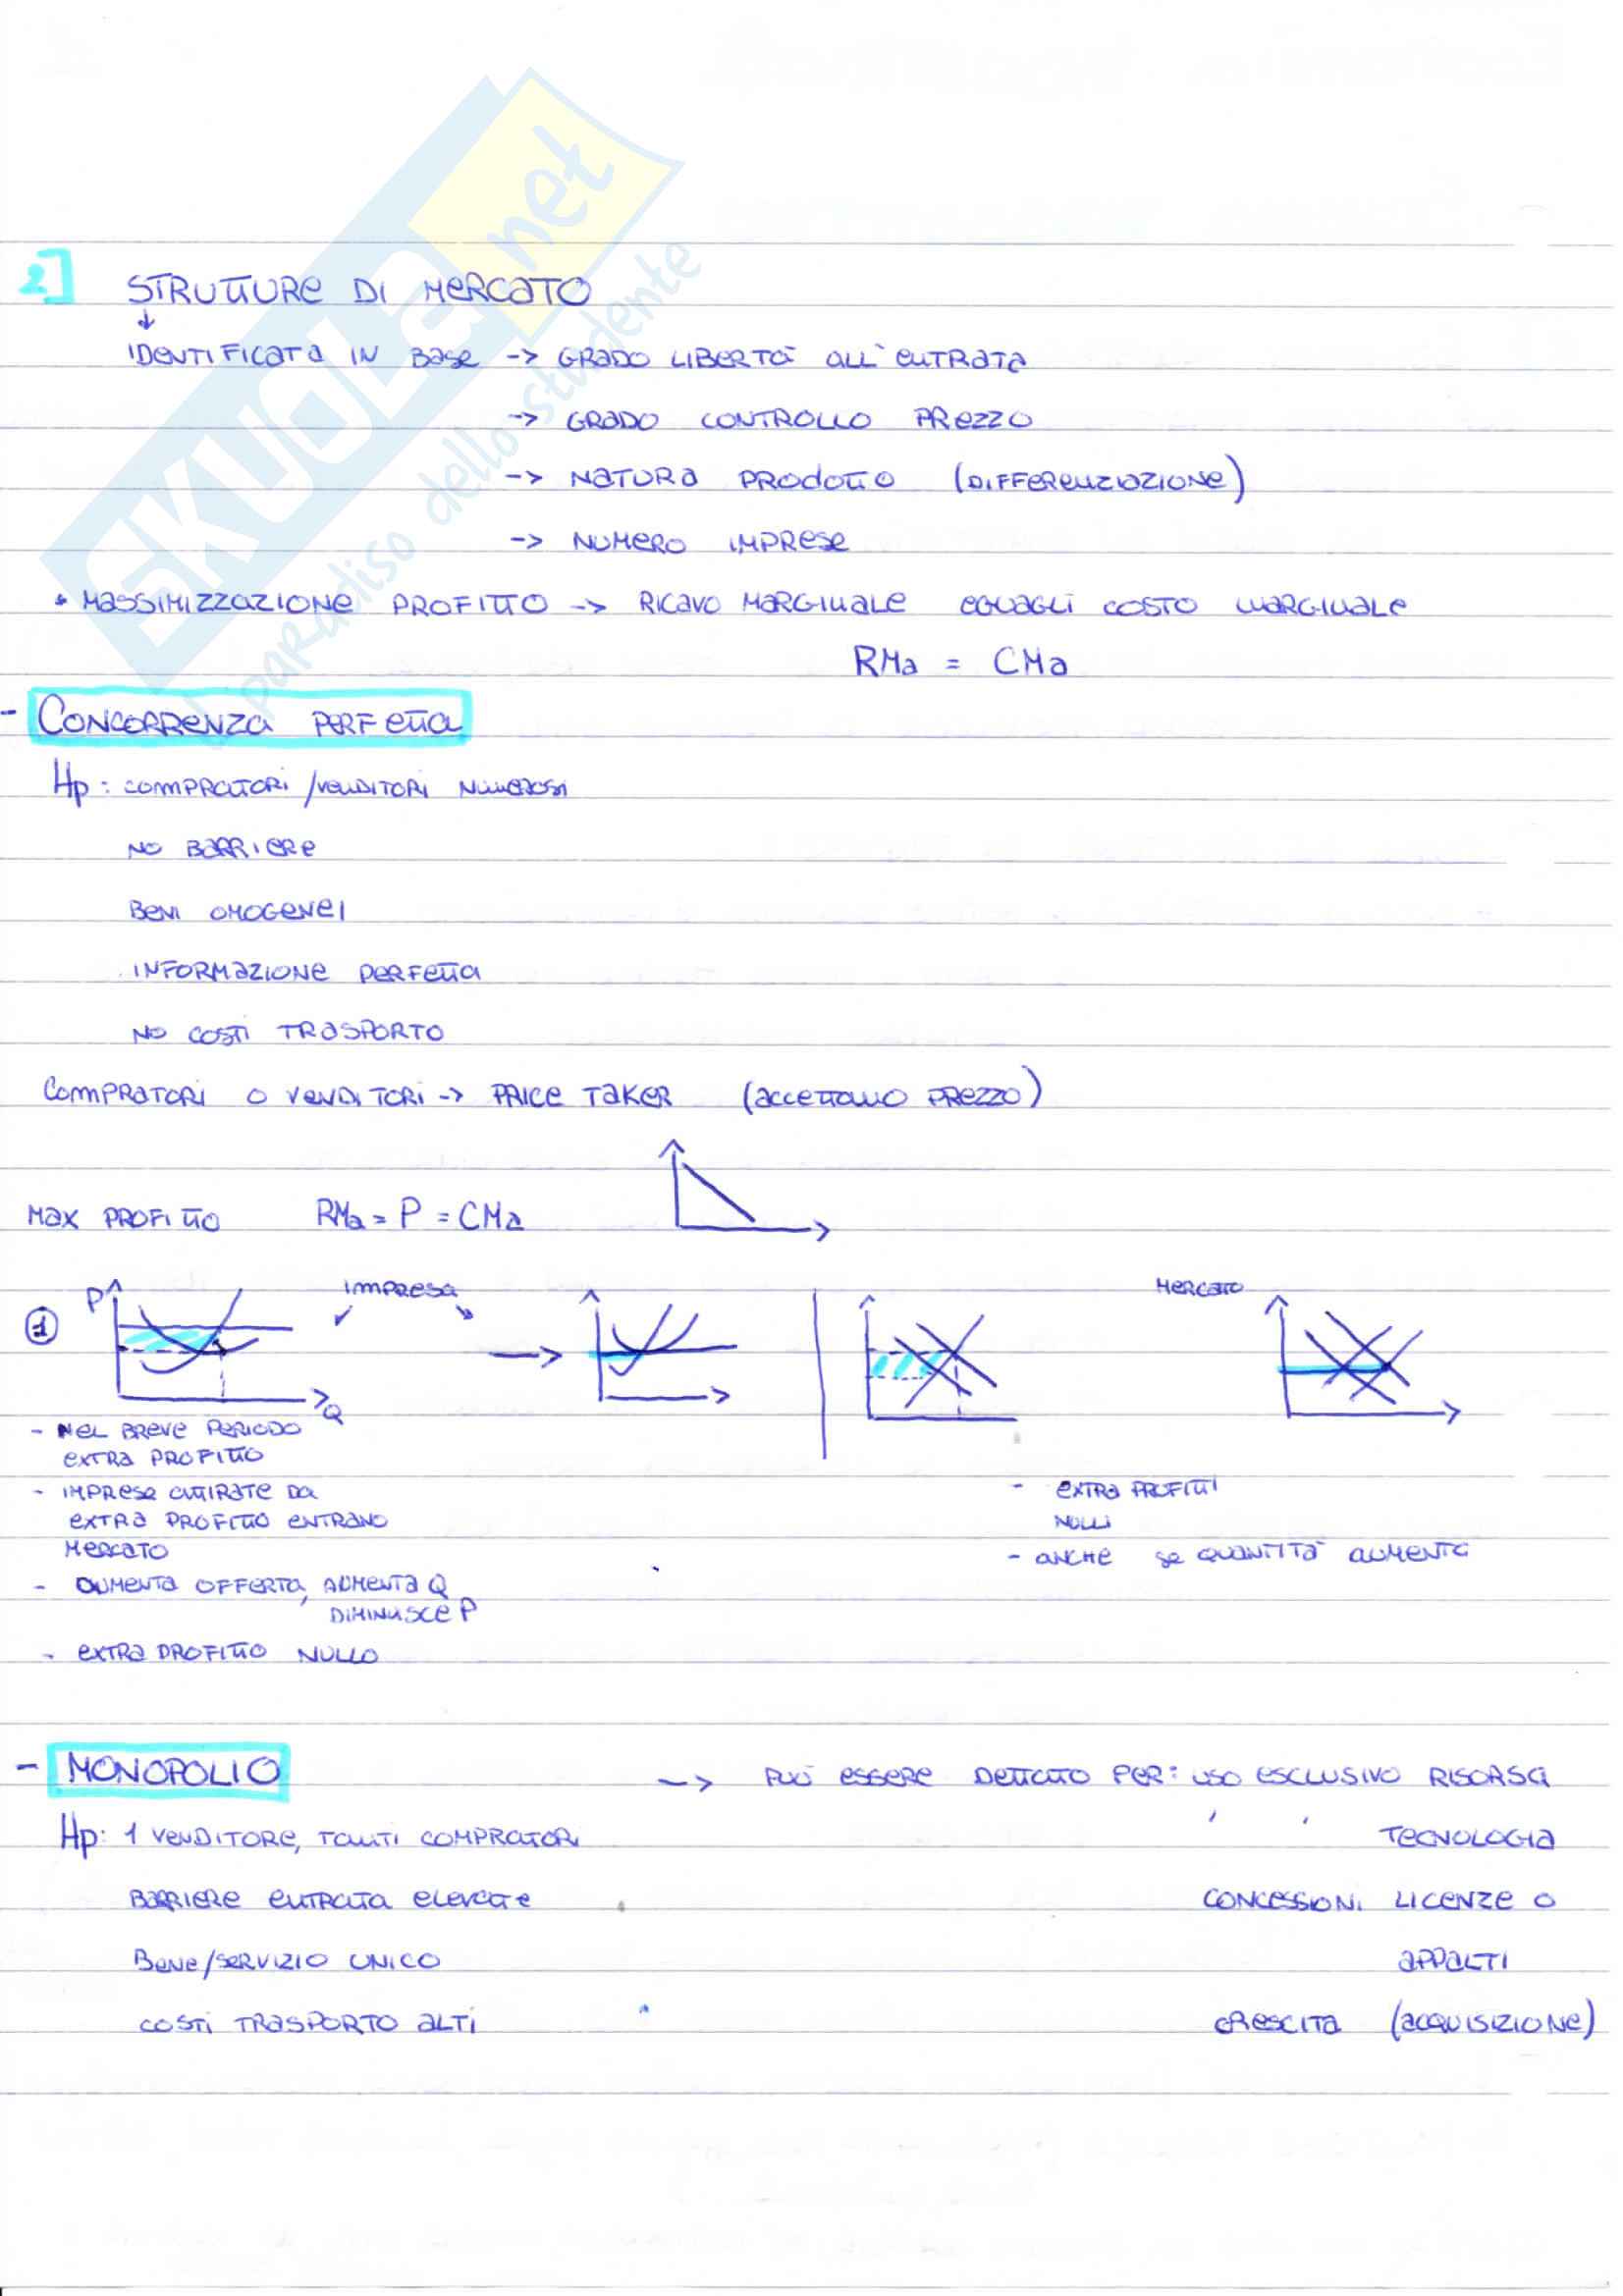 SKUOLA.net
paradiso dello studente
2] STRUTTURE DI MERCATO
↓
IDENTIFICATA IN BASE -> GRADO LIBERTÀ ALL'ENTRATA
-> GRADO CONTROLLO PREZZO
-> NATURA PRODOTTO (DIFFERENZIAZIONE)
-> NUMERO IMPRESE
* MASSIMIZZAZIONE PROFITTO -> RICAVO MARGINALE EGUAGLI COSTO MARGINALE
RMa = CMa
- CONCORRENZA PERFETTA
Hp: COMPRATORI/VENDITORI NUMEROSI
NO BARRIERE
BENI OMOGENEI
INFORMAZIONE PERFETTA
NO COSTI TRASPORTO
COMPRATORI O VENDITORI -> PRICE TAKER (ACCETTANO PREZZO)
MAX PROFITTO RMa = P = CMa
1 P Q IMPRESA MERCATO
- NEL BREVE PERIODO
EXTRA PROFITTO
- IMPRESE ATTIRATE DA
EXTRA PROFITTO ENTRANO
MERCATO
- AUMENTA OFFERTA, AUMENTA Q
DIMINUSCE P
- EXTRA PROFITTO NULLO
- EXTRA PROFITTI
NULLI
- ANCHE SE QUANTITÀ AUMENTA
- MONOPOLIO -> PUÒ ESSERE DETTATO PER: USO ESCLUSIVO RISORSA
Hp: 1 VENDITORE, TANTI COMPRATORI ' ' TECNOLOGIA
BARRIERE ENTRATA ELEVATE CONCESSIONI LICENZE O
BENE/SERVIZIO UNICO APPALTI
COSTI TRASPORTO ALTI CRESCITA (ACQUISIZIONE)